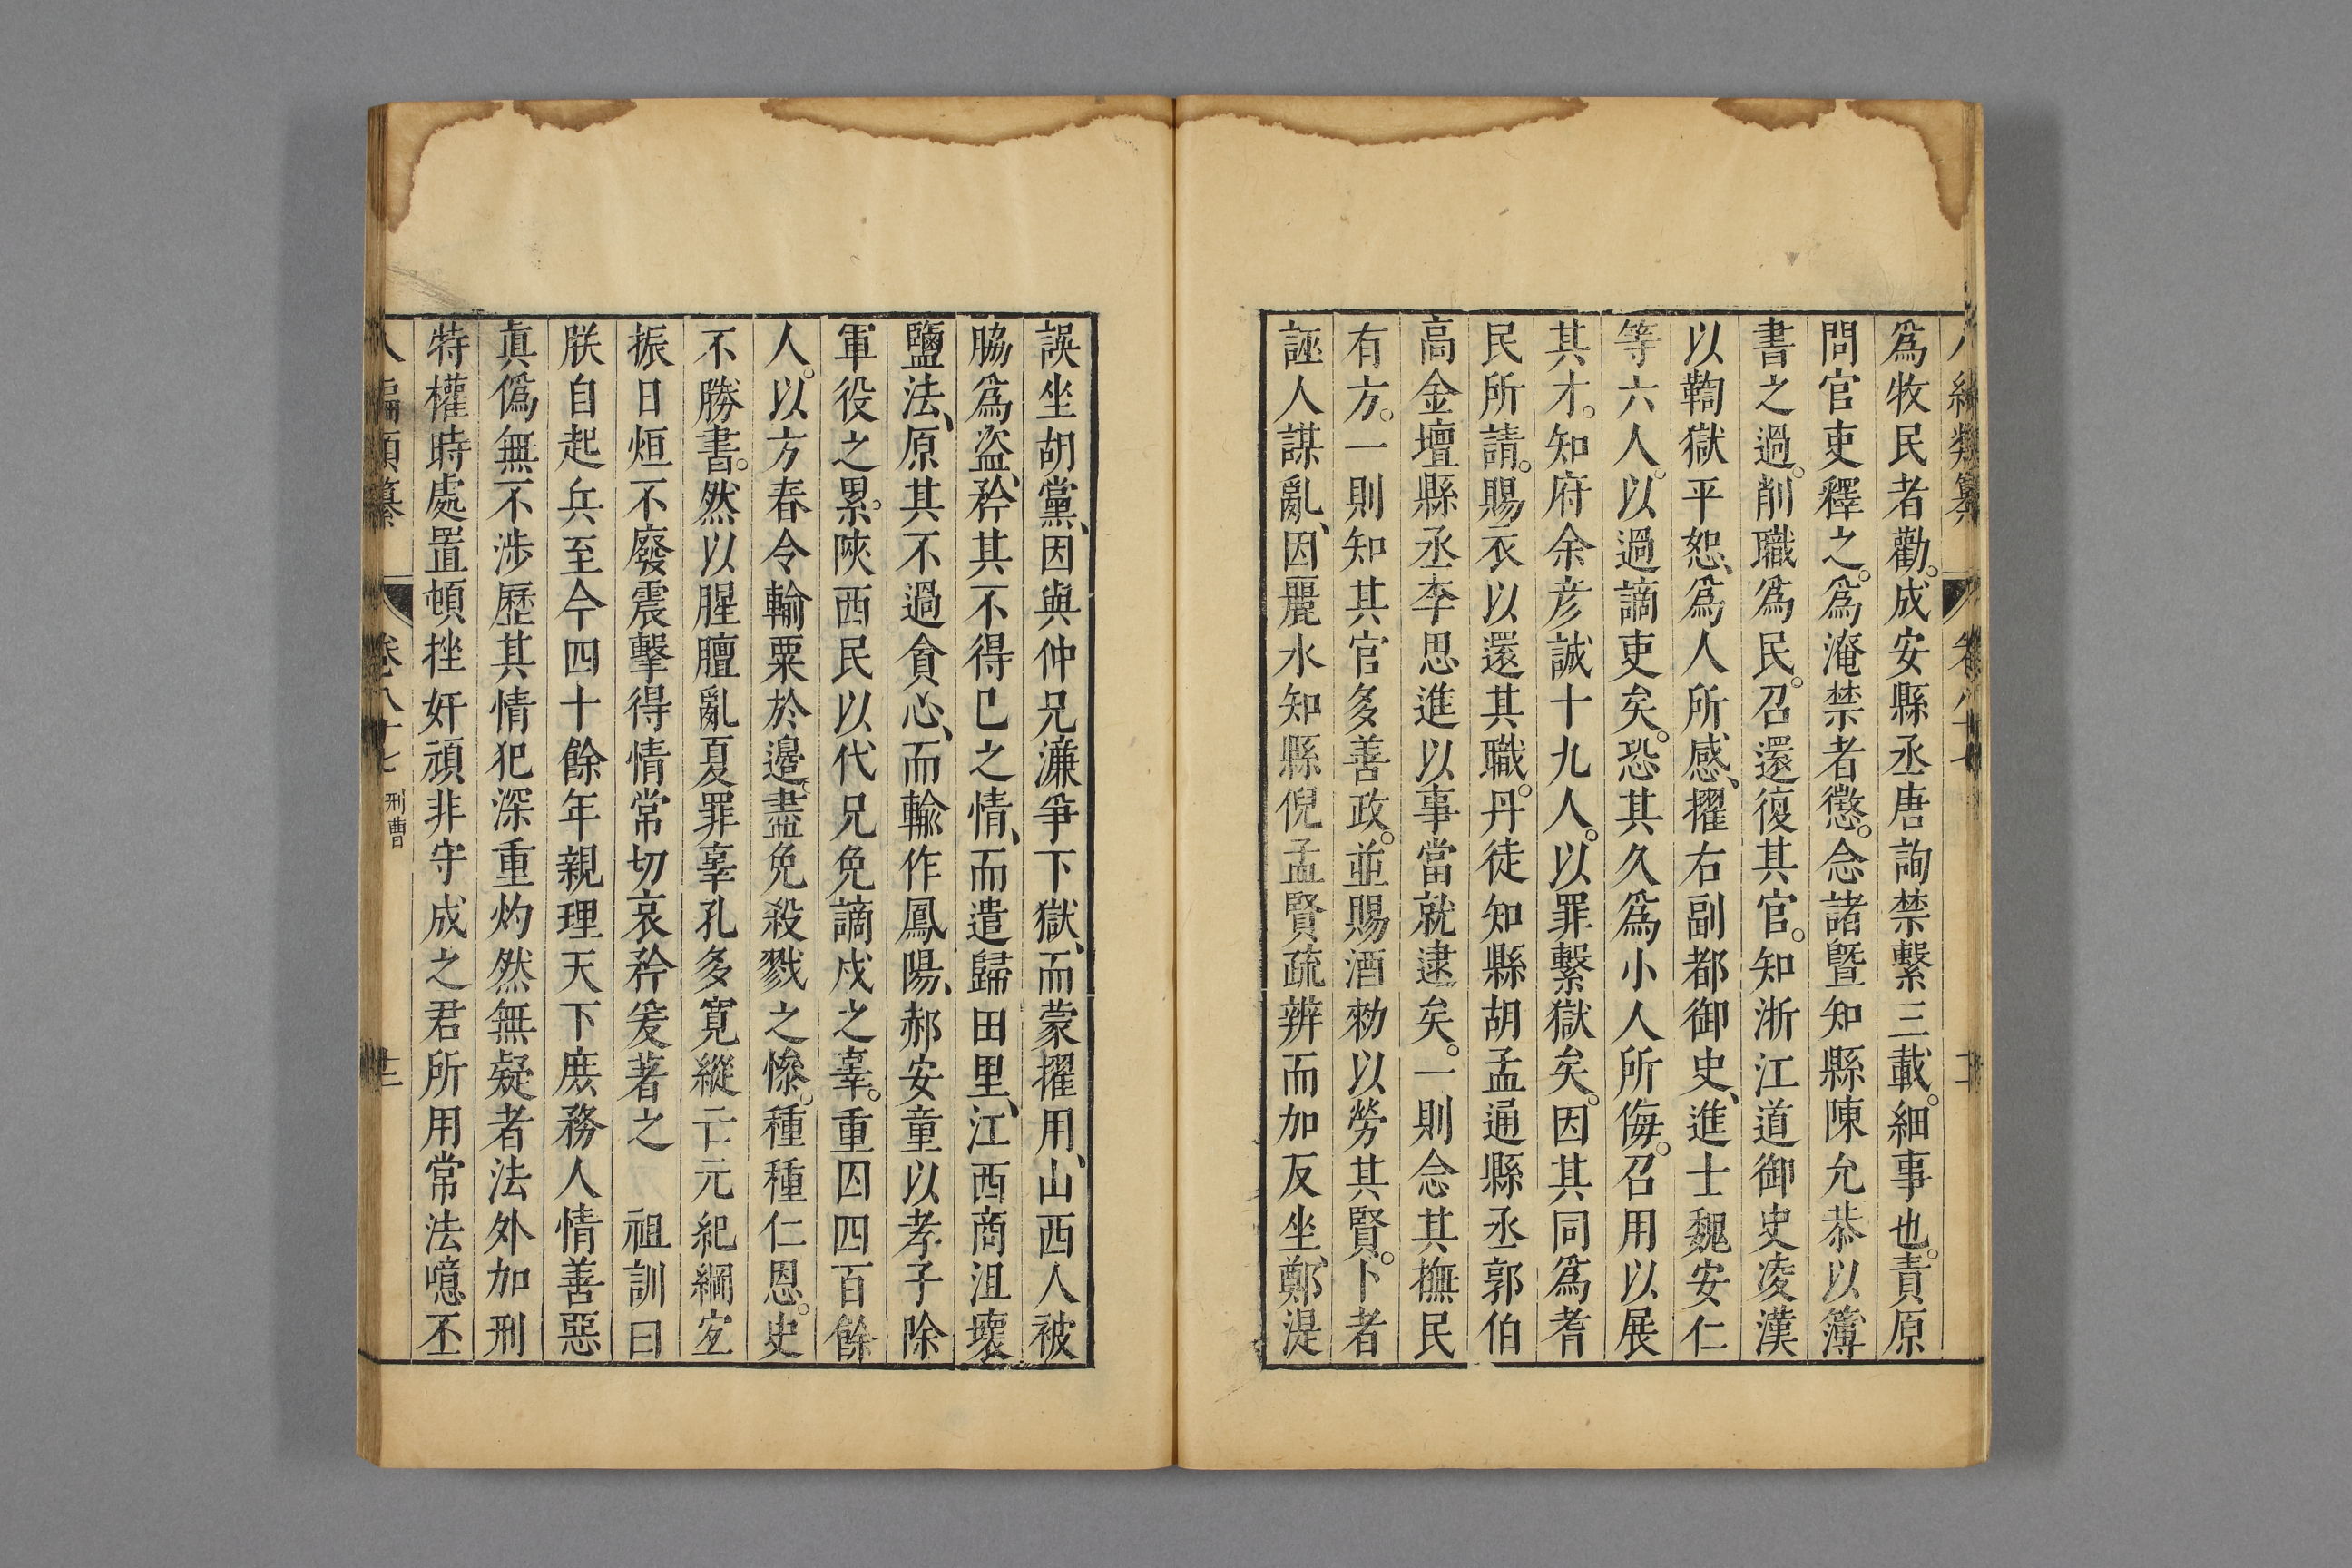 爲牧民者勸。成安縣丞唐詢禁繫三載。細事也。責原
問官吏釋之。爲淹禁者懲。念諸暨知縣陳允恭以簿
書之過。削職爲民。召還復其官。知浙江道御史凌漢
以鞫獄平恕、爲人所感、擢右副都御史、進士魏安仁
等六人。以過謫吏矣。恐其久爲小人所侮。召用以展
其才。知府余彥誠十九人。以罪繫獄矣。因其同爲耆
民所請。賜衣以還其職。丹徒知縣胡孟通縣丞郭伯
高金壇縣丞李思進以事當就逮矣。一則念其撫民
有方。一則知其官多善政。並賜酒勑以勞其賢。卞者
誣人謀亂、因麗水知縣倪孟賢疏辨而加反坐、鄭湜
誤坐胡黨、因與仲兄濂爭下獄、而蒙擢用、山西人被
脇爲盜、矜其不得已之情、而遣歸田里、江西商沮壞
鹽法、原其不過貪心、而輸作鳳陽、郝安童以孝子除
軍役之累。陝西民以代兄免謫戍之辜。重囚四百餘
人。以方春令輸粟於邊。盡免殺戮之慘。種種仁恩。史
不勝書。然以腥膻亂夏罪辜孔多寬縱亡元紀綱定
振日烜不廢震擊得情常切哀矜爰著之 祖訓曰
朕自起兵至今四十餘年親理天下庶務人情善惡
眞僞無不涉歷其情犯深重灼然無疑者法外加刑
特權時處置頓挫奸頑非守成之君所用常法噫丕
八編類纂 卷八十七 刑曹